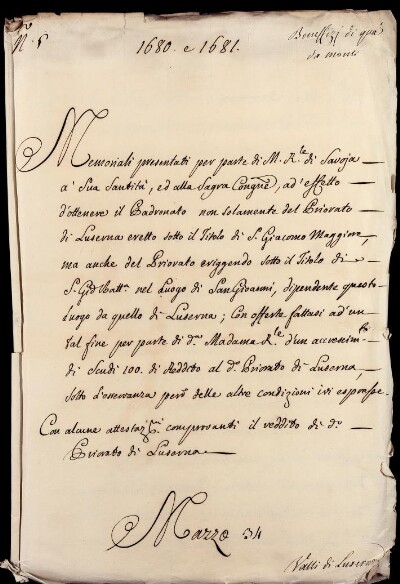 N.º 6
1680. e 1681.
Beneffizj di quà
da monti
Memoriali presentati per parte di M. R.le di Savoja
a' Sua Santità, ed alla Sagra Congne, ad' effetto
d'ottenere il Padronato non solamente del Priorato
di Luserna eretto sotto il Titolo di S. Giacomo Maggiore,
ma anche del Priorato erigendo sotto il Titolo di
S. Gio Batta nel Luogo di San Giovanni, dipendente questo
Luogo da quello di Luserna; Con offerte fattasi ad' un
tal fine per parte di da Madama R.le d'un accrescimto
di Scudi 100. di Reddito al do Priorato di Luserna,
sotto l'osservanza però delle altre condizioni ivi espresse.
Con alcune attestazni comprovanti il reddito di do
Priorato di Luserna
Mazzo 34
Valli di Luserna